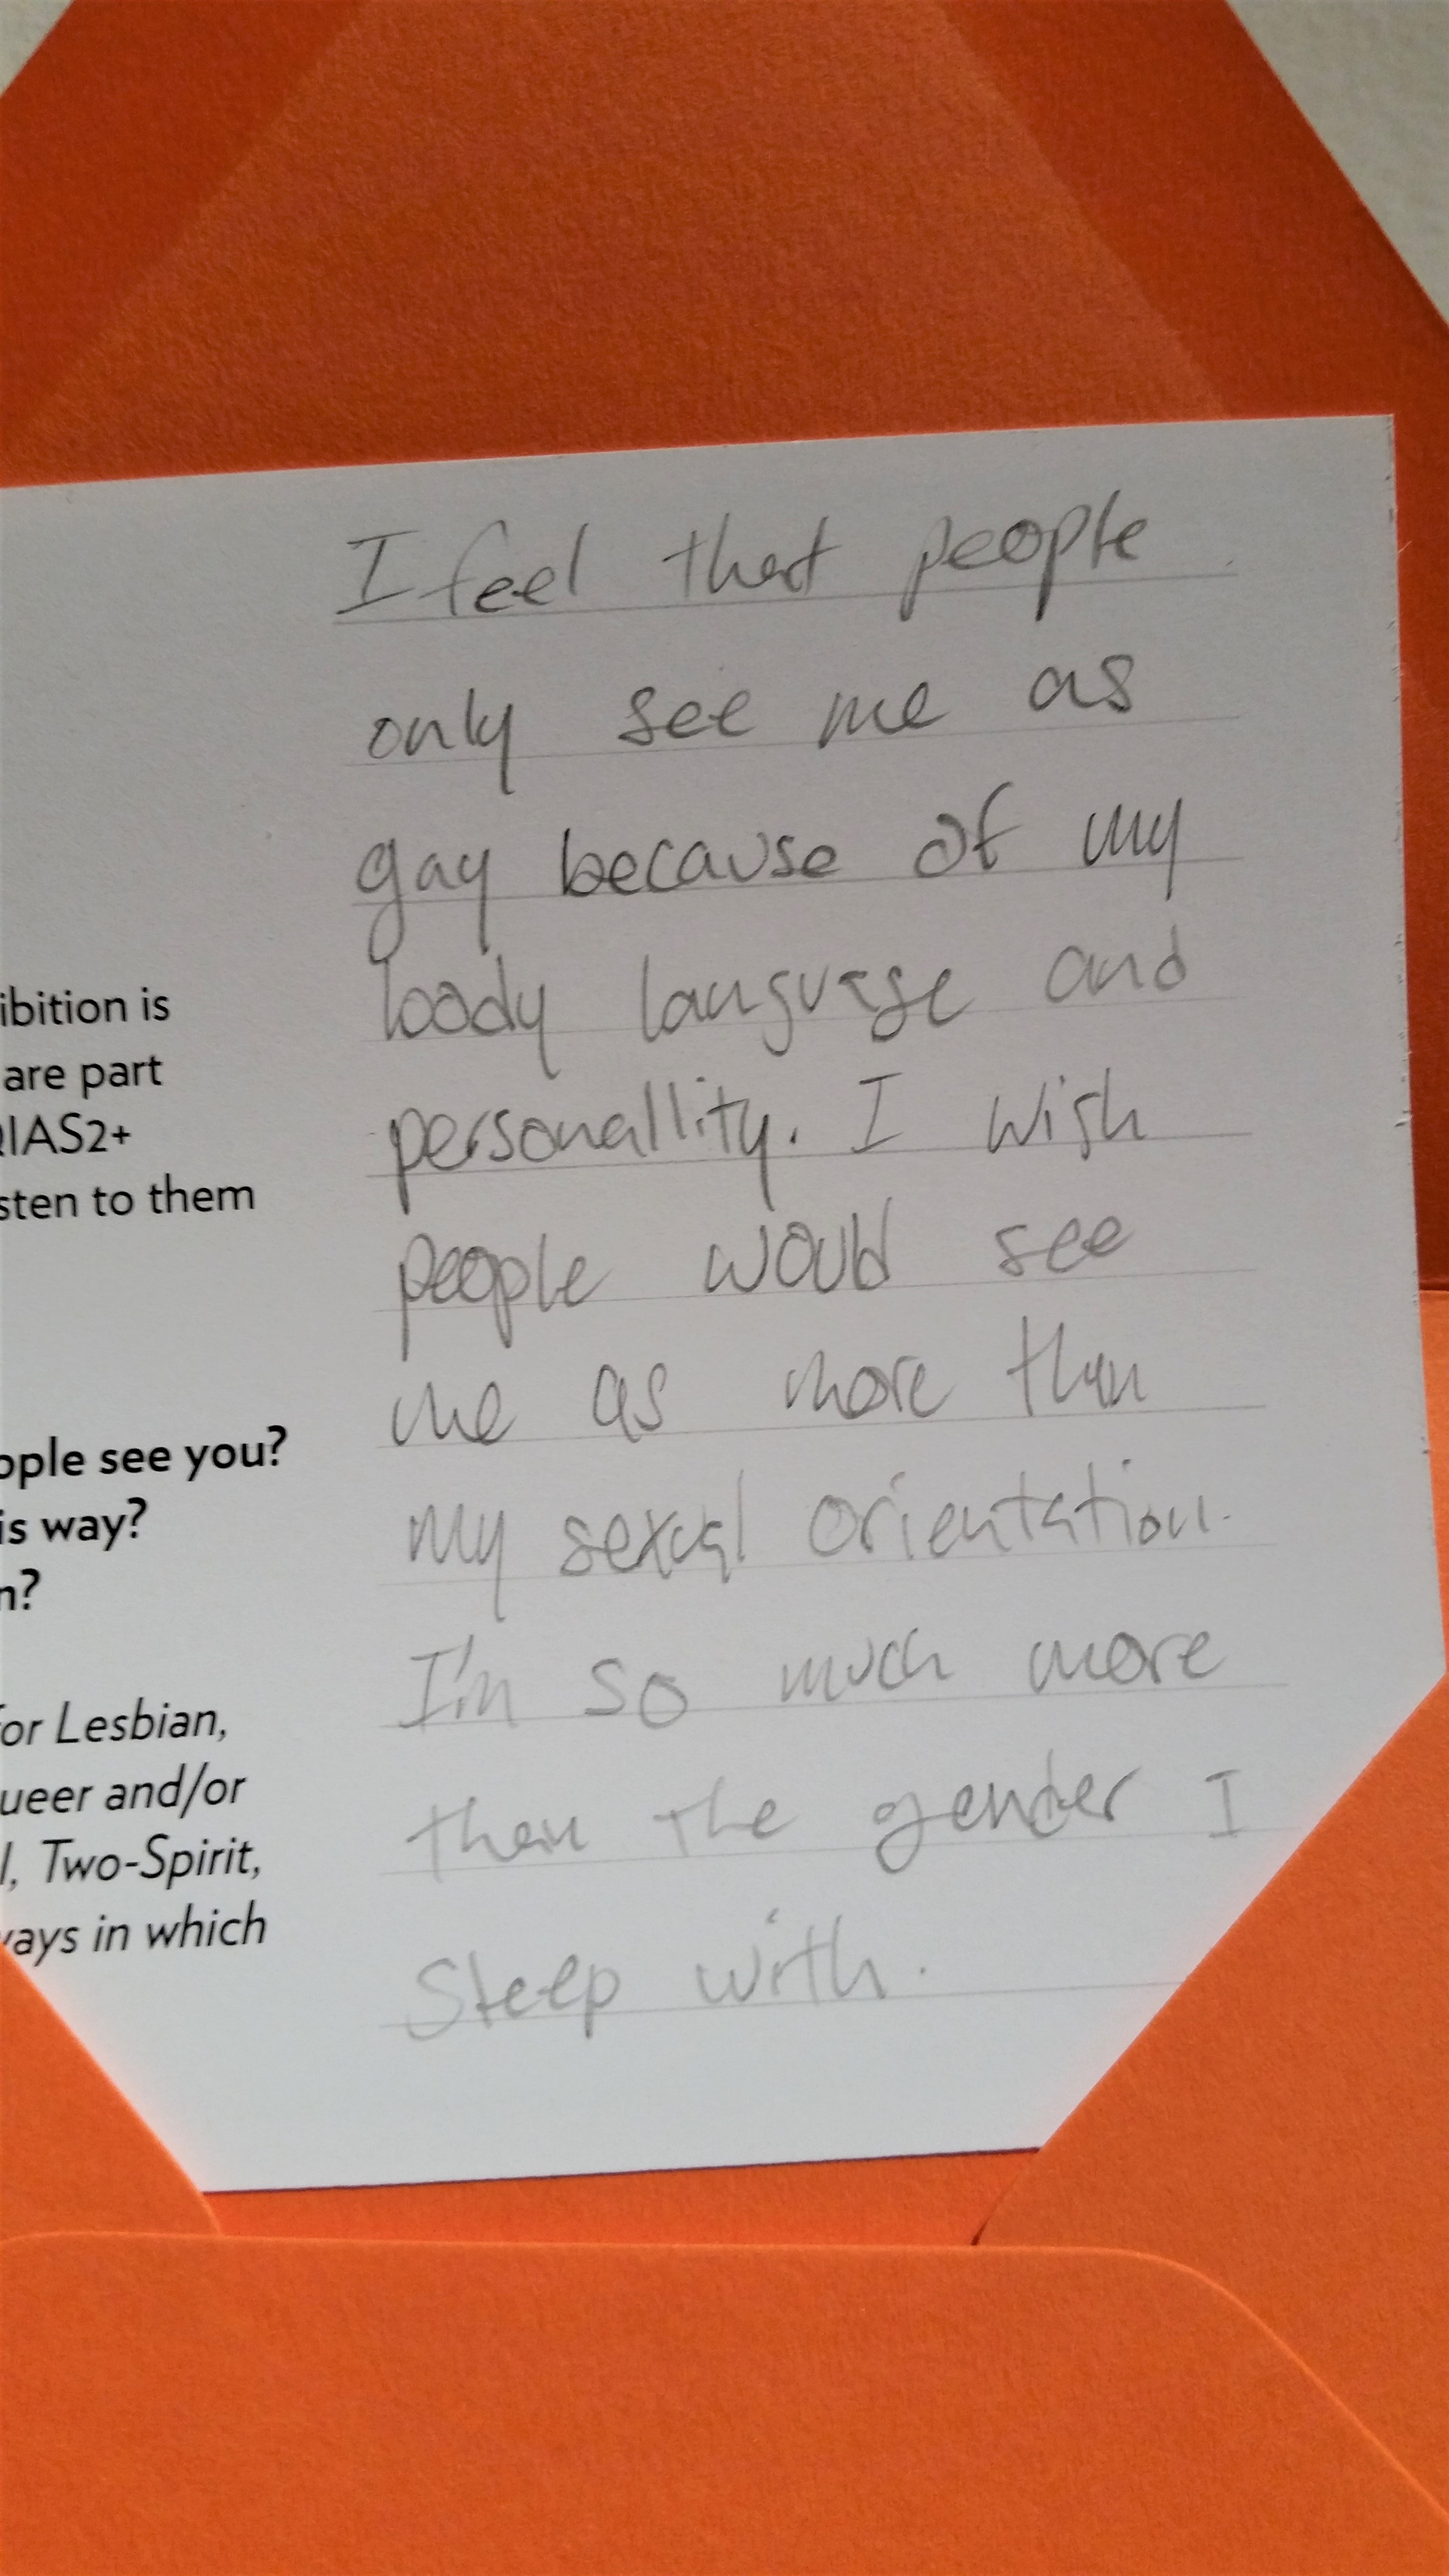 I feel that people
only see me as
gay because of my
body language and
personallity. I wish
people would see
me as more than
my sexual orientation.
I'm so much more
than the gender I
sleep with.
ibition is
are part
QIAS2+
sten to them
ople see you?
is way?
n?
for Lesbian,
ueer and/or
l, Two-Spirit,
ways in which